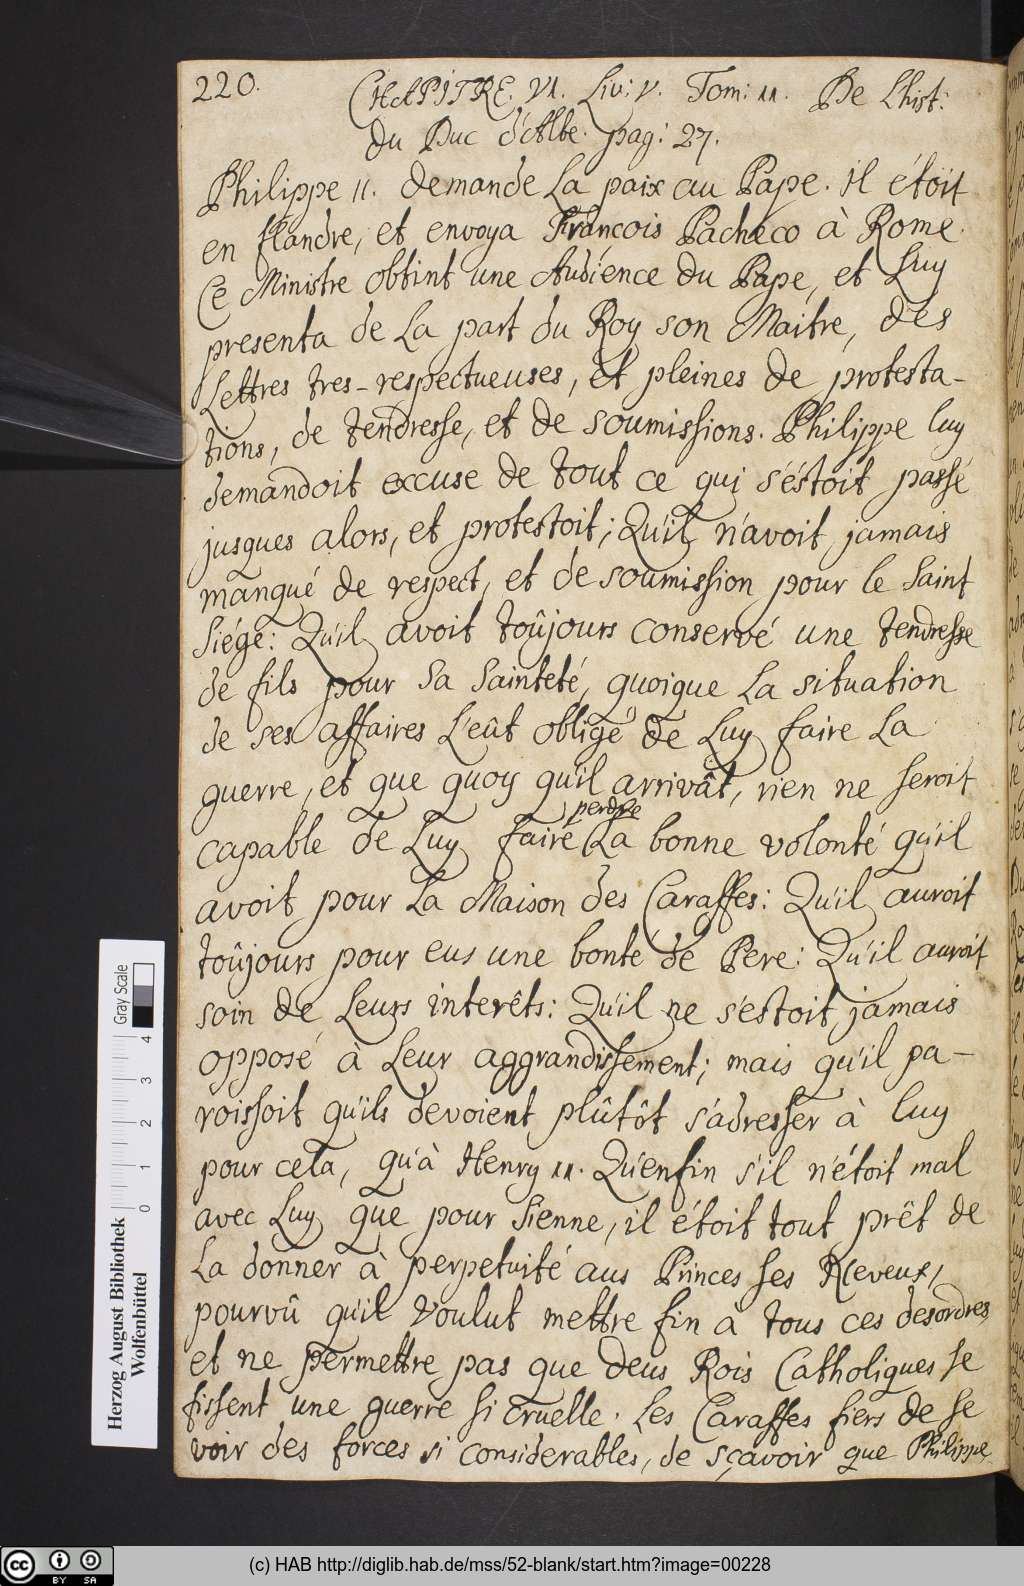 220.
CHAPITRE. VI. Liv: V. Tom: II. De Lhist:
du Duc d'Albe. pag: 27.
Philippe II. demande La paix au Pape. il étoit
en flandre, et envoya Francois Pacheco à Rome.
Ce Ministre obtint une Audience du Pape, et Luy
presenta de La part du Roy son Maitre, des
Lettres tres-respectueuses, et pleines de protesta-
tions, de tendresse, et de soumissions. Philippe luy
demandoit excuse de tout ce qui s'éstoit passé
jusques alors, et protestoit; Qu'il n'avoit jamais
manqué de respect, et de soumission pour le Saint
Siége: Qu'il avoit toûjours conservé une tendresse
de fils pour Sa Sainteté, quoique La situation
de ses affaires L'eût obligé de Luy faire La
guerre, et que quoy qu'il arrivât, rien ne seroit
perdre
capable de Luy faire La bonne volonté qu'il
avoit pour La Maison des Caraffes: Qu'il auroit
toûjours pour eus une bonté de Pere: Qu'il auroit
soin de Leurs interêts: Qu'il ne s'estoit jamais
opposé à Leur aggrandissement; mais qu'il pa-
roissoit qu'ils devoient plûtôt s'adresser à luy
pour cela, qu'à Henry II. Qu'enfin s'il n'étoit mal
avec Luy que pour Sienne, il étoit tout prêt de
La donner à perpetuité aus Princes ses Neveux,
pourvû qu'il voulut mettre fin à tous ces desordres,
et ne permettre pas que deus Rois Catholiques se
fissent une guerre si cruelle. Les Caraffes fiers de se
voir des forces si considerables, de sçavoir que Philippe
Gray Scale
0 1 2 3 4
Herzog August Bibliothek
Wolfenbüttel
cc BY SA
(c) HAB http://diglib.hab.de/mss/52-blank/start.htm?image=00228